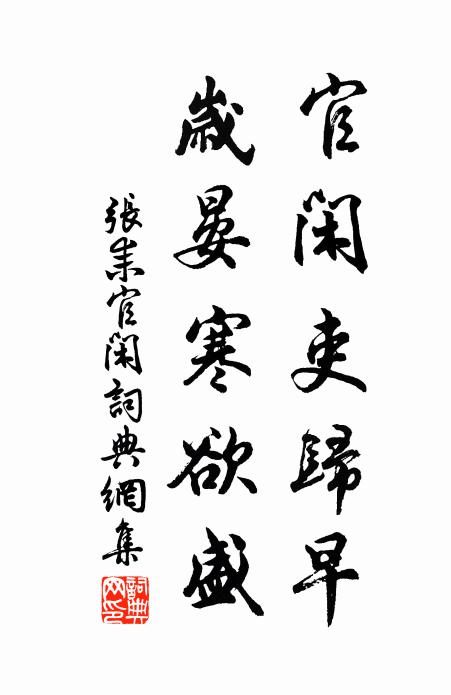 官閑吏歸早
歲晏寒欲盛
張耒官閑詞典網集
詞典網印